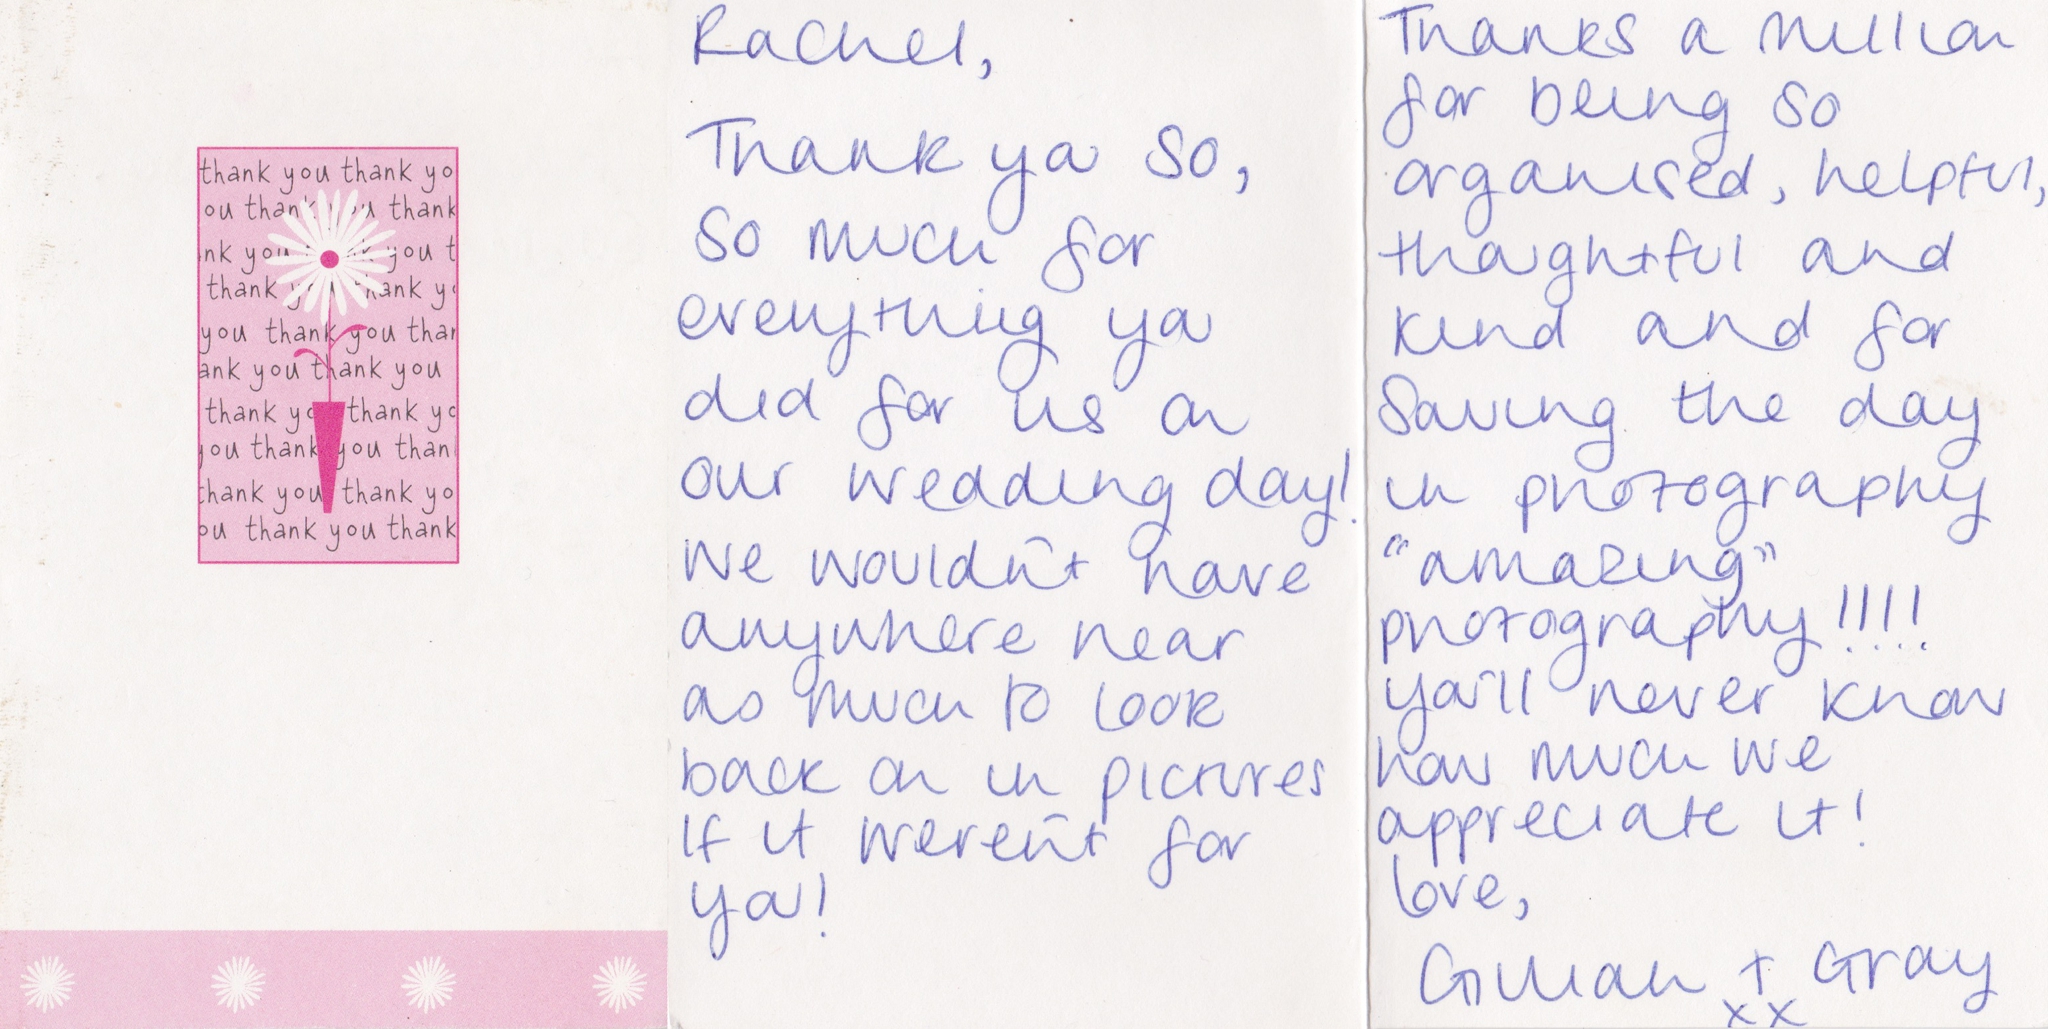 thank you thank yo
ou thank you thank
nk you thank you t
thank you thank yo
you thank you than
ank you thank you
thank you thank yo
you thank you than
thank you thank yo
ou thank you thank
Rachel,
Thank you so,
so much for
everything you
did for us on
our wedding day!
We wouldn't have
anywhere near
as much to look
back on in pictures
if it weren't for
you!
Thanks a million
for being so
organised, helpful,
thoughtful and
kind and for
saving the day
in photography
"amazing"
photography!!!!
You'll never know
how much we
appreciate it!
Love,
Gillian + Gray
xx